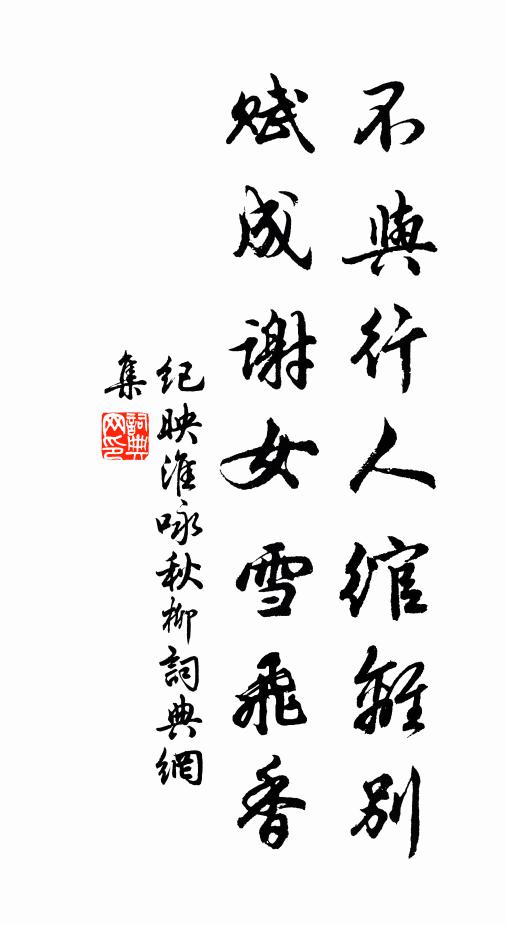 不與行人綰離別
賦成謝女雪飛香
紀映淮咏秋柳詞典網
集
詞典网印